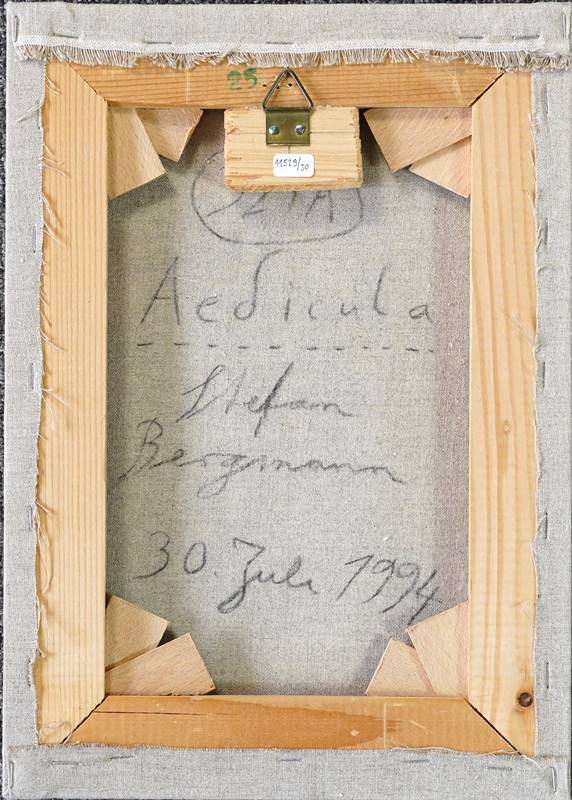 25
11529/30
Aedicula
Stefan
Bergmann
30. Juli 1994